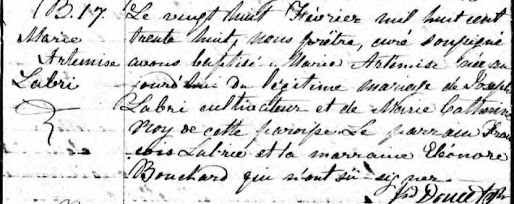 B.17.
Marie
Artemise
Labri
Le vingt huit Février mil huit cent
trente huit, nous prêtre, curé soussigné
avons baptisé Marie Artemise née au
jourd'hui du légitime mariage de Joseph
Labri cultivateur et de Marie Catherine
Roy de cette paroisse. Le parrain Fran
cois Labrie et la marraine Eléonore
Bouchard qui n'ont sû signer.
Doucet Ptre